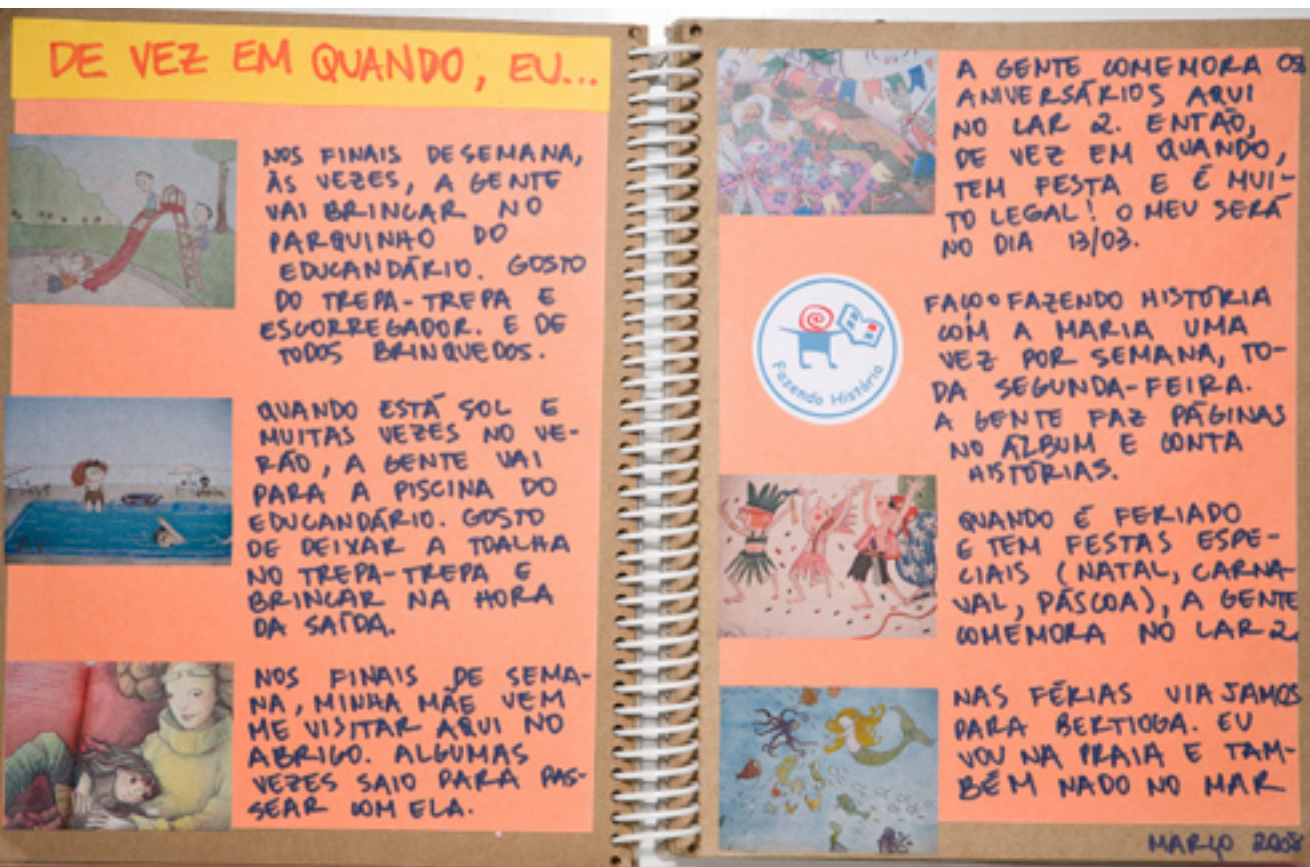 DE VEZ EM QUANDO, EU...
NOS FINAIS DE SEMANA,
ÀS VEZES, A GENTE
VAI BRINCAR NO
PARQUINHO DO
EDUCANDÁRIO. GOSTO
DO TREPA-TREPA E
ESCORREGADOR. E DE
TODOS BRINQUEDOS.
QUANDO ESTÁ SOL E
MUITAS VEZES NO VE-
RÃO, A GENTE VAI
PARA A PISCINA DO
EDUCANDÁRIO. GOSTO
DE DEIXAR A TOALHA
NO TREPA-TREPA E
BRINCAR NA HORA
DA SAÍDA.
NOS FINAIS DE SEMA-
NA, MINHA MÃE VEM
ME VISITAR AQUI NO
ABRIGO. ALGUMAS
VEZES SAIO PARA PAS-
SEAR COM ELA.
A GENTE COMEMORA OS
ANIVERSÁRIOS AQUI
NO LAR 2. ENTÃO,
DE VEZ EM QUANDO,
TEM FESTA E É MUI-
TO LEGAL! O MEU SERÁ
NO DIA 13/03.
Fazendo História
FAÇO O FAZENDO HISTÓRIA
COM A MARIA UMA
VEZ POR SEMANA, TO-
DA SEGUNDA-FEIRA.
A GENTE FAZ PÁGINAS
NO ÁLBUM E CONTA
HISTÓRIAS.
QUANDO É FERIADO
E TEM FESTAS ESPE-
CIAIS (NATAL, CARNA-
VAL, PÁSCOA), A GENTE
COMEMORA NO LAR 2.
NAS FÉRIAS VIAJAMOS
PARA BERTIOGA. EU
VOU NA PRAIA E TAM-
BÉM NADO NO MAR
MARÇO 2008